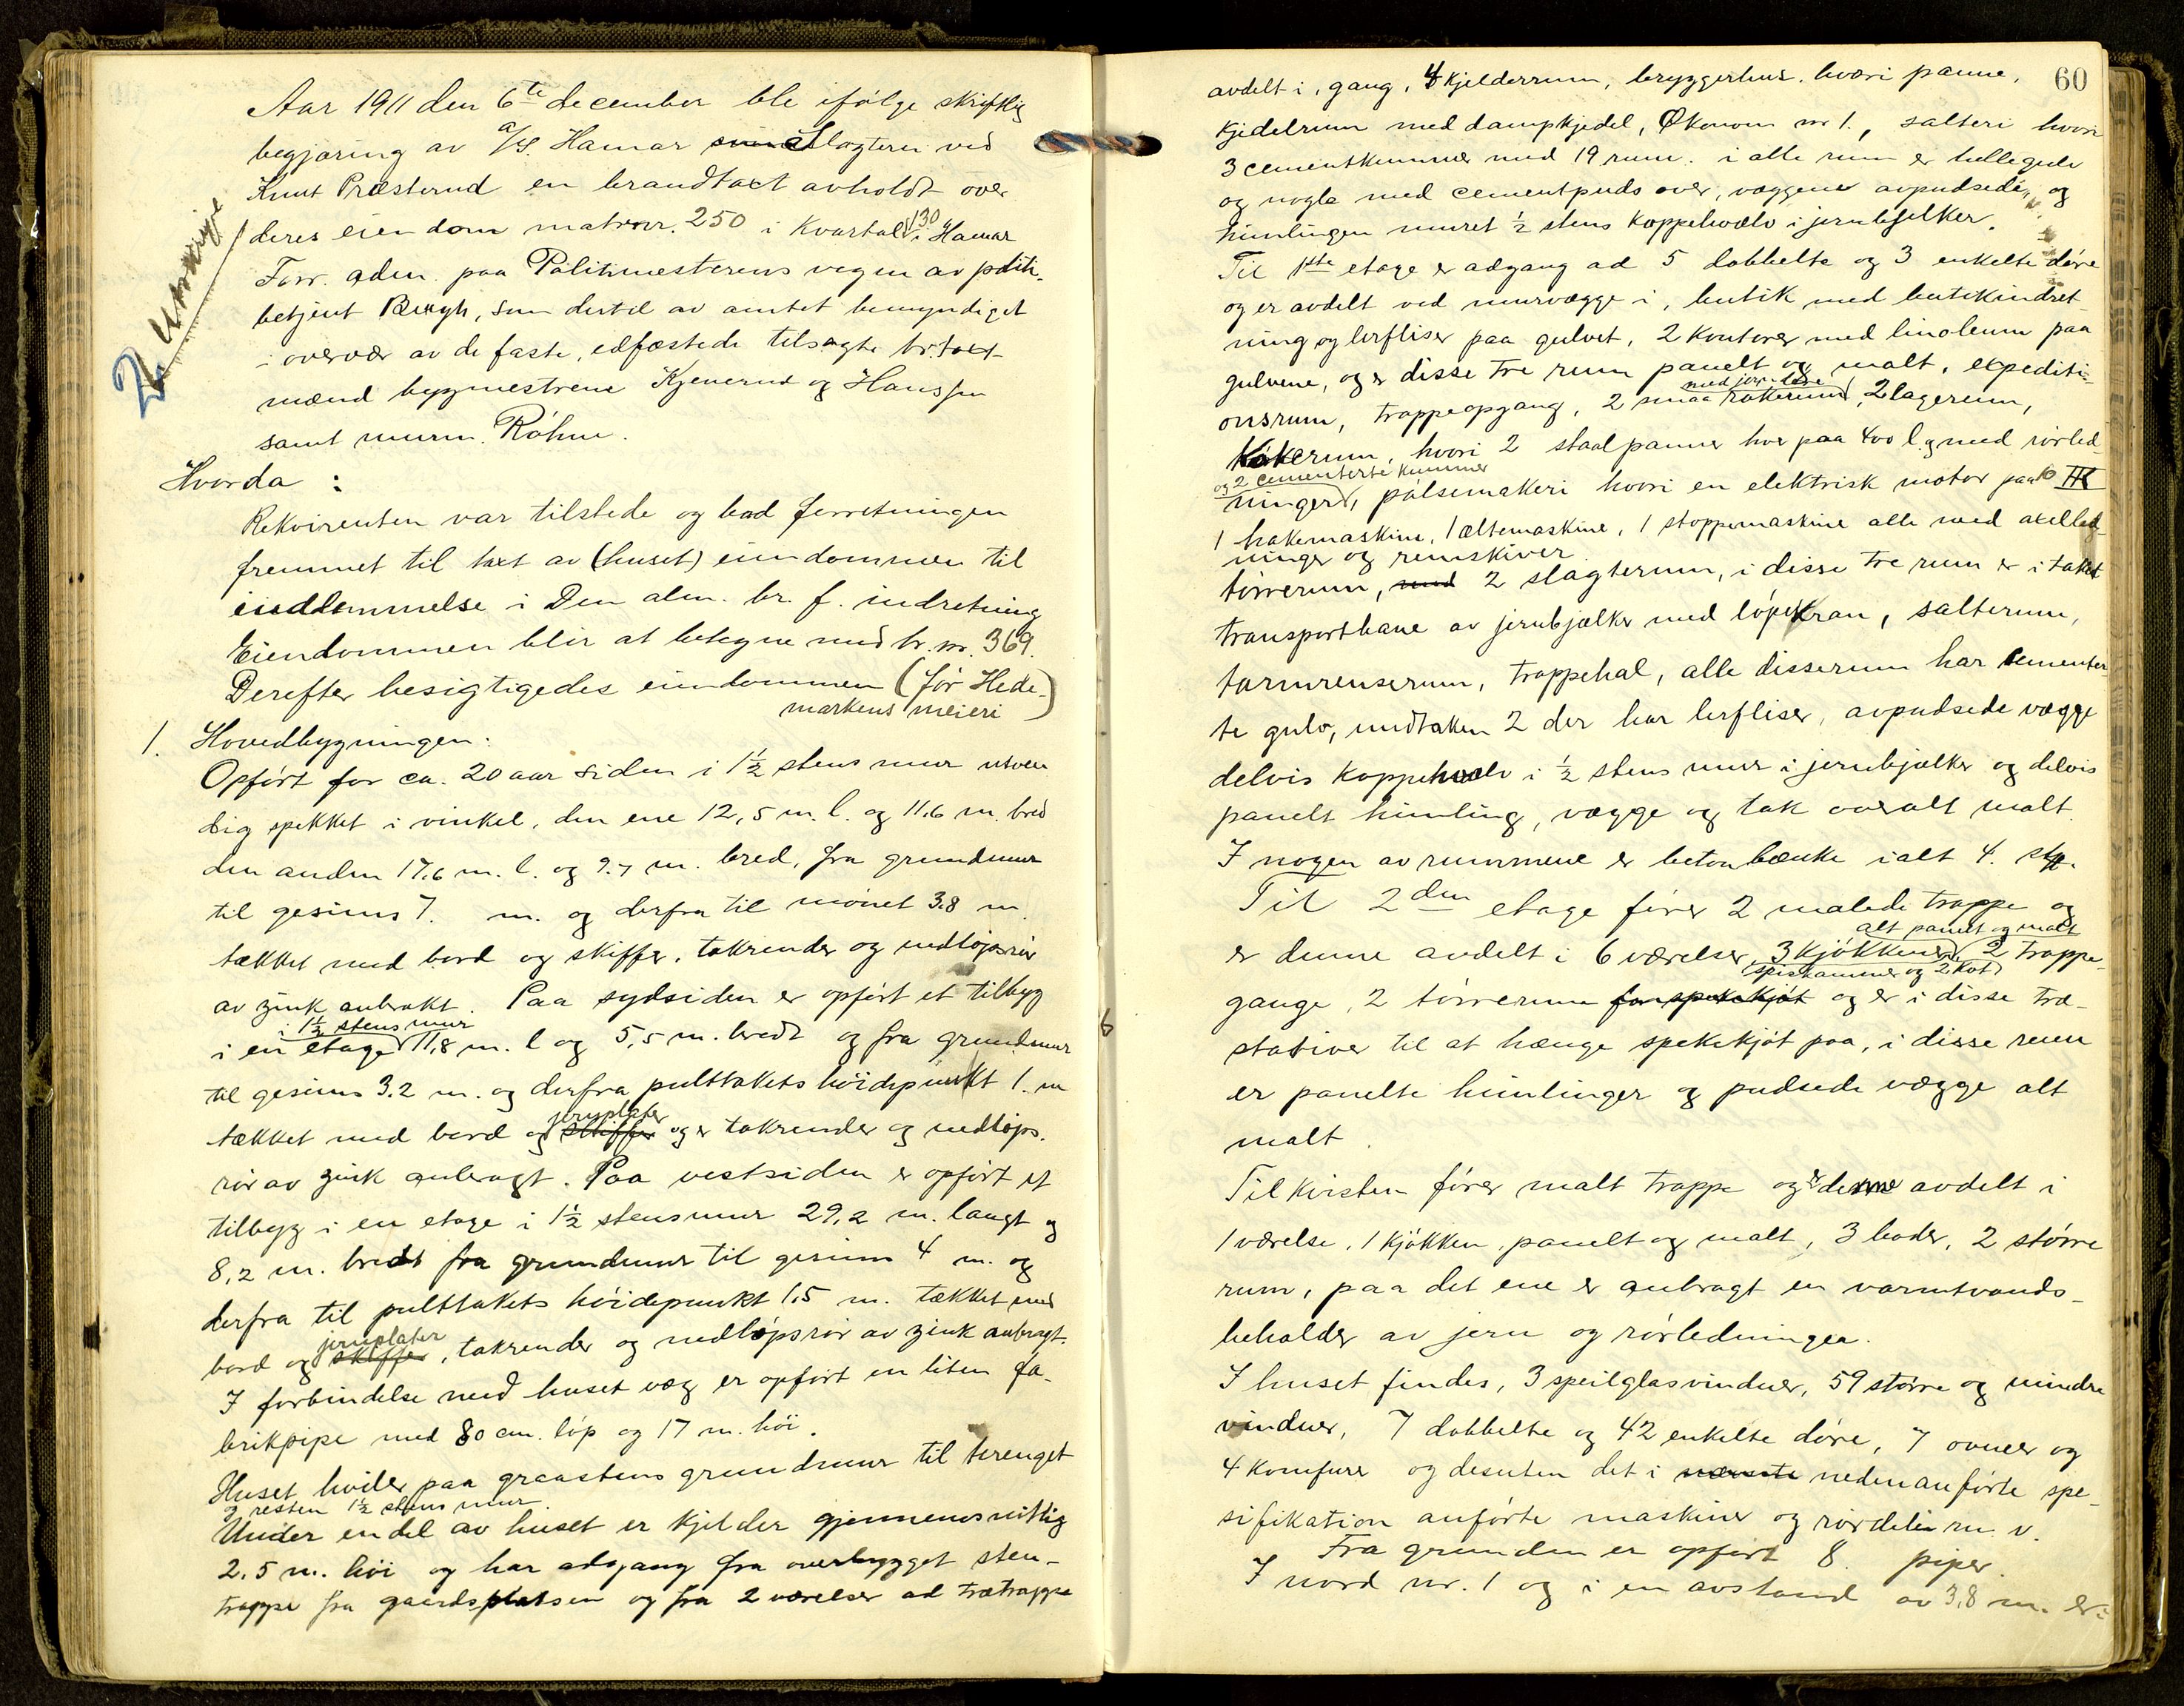 Aar 1911 den 6te december ble ifølge skriftlig
begjæring av a/s. Hamar Slagteri ved
Knut Præsterud en brandtaxt avholdt over
deres eiendom matrnr. 250 i Kvartal 130 i Hamar
Forr. aden. paa Politimesterens vegne av politi-
betjent Bergh, som dertil av amtet bemyndiget
i overvær av de faste, edfæstede tilsagte br.taxt-
mænd bygmestrene Kjenerud og Hanssen
samt murm. Røhne.
2 Utskrifter
Hvorda :
Rekvirenten var tilstede og bad forretningen
fremmet til taxt av (huset) eiendommen til
inddlemmelse i Den alm. br. f. indretning
Eiendommen blir at betegne med br. nr. 369.
Derefter besigtigedes eiendommen (før Hede-
markens meieri)
1. Hovedbygningen:
Opført for ca. 20 aar siden i 1½ stens mur utven
dig spekket i vinkel, den ene 12,5 m. l. og 11,6 m. bred
den anden 17,6 m. l. og 9.7 m. bred, fra grundmur
til gesims 7. m. og derfra til mønet 3.8 m.
tækket med bord og skiffer, takrender og nedløpsrør
av zink anbrakt. Paa sydsiden er opført et tilbyg
i 1½ stens mur
i en etage 11,8 m. l og 5,5 m. bredt og fra grundmur
til gesims 3.2 m. og derfra pulttakets høidepunkt 1. m
jernplater
tækket med bord og skiffer og er takrender og nedløps.
rør av zink anbragt. Paa vestsiden er opført et
tilbyg i en etage i 1½ stensmur 29,2 m. langt og
8,2 m. bredt fra grundmur til gesims 4 m. og
derfra til pulttakets høidepunkt 1.5 m. tækket med
jernplater
bord og skiffer, takrender og nedløpsrør av zink anbragt.
I forbindelse med huset væg er opført en liten fa-
brikpipe med 80 cm. løp og 17 m. høi.
Huset hviler paa graastens grundmur til terenget
og resten 1½ stens mur.
Under en del av huset er kjelder gjennemsnittlig
2.5 m. høi og har adgang fra overbygget sten-
trappe fra gaardsplatsen og fra 2 værelser ad trætrappe
60
avdelt i, gang, 4 kjelderrum, bryggerhus, hvori panne,
kjedelrum med dampkjedel, Økonom nr 1., salteri hvori
3 cementkummer med 19 rum. i alle rum er hellegulv
og nogle med cementpuds over, væggene avpudsede, og
himlingen muret ½ stens kappehvælv i jernbjelker.
Til 1ste etage er adgang ad 5 dobbelte og 3 enkelte døre
og er avdelt ved murvægge i, butik med butikindret-
ning og lerfliser paa gulvet, 2 kontorer med linoleum paa
gulvene, og er disse tre rum panelt og malt, expediti-
med jern døre
onsrum, trappeopgang, 2 smaa røkerum, 2 lagerrum,
Kokerum, hvori 2 staalpanner hver paa 400 l. og med rørled-
og 2 cementerte kummer
ninger, pølsemakeri hvori en elektrisk motor paa 10 HK
1 hakemaskine, 1 æltemaskine, 1 stoppemaskine alle med axelled-
ninger og remskiver.
tørrerum, med 2 slagterum, i disse tre rum er i taket
transportbane av jernbjælker med løpekran, salterum,
tarmrenserum, trappehal, alle disse rum har sementer-
te gulv, undtaken 2 der har lerfliser, avpudsede vægge
delvis kappehvælv i ½ stens mur i jernbjælker og delvis
panelt himling, vægge og tak overalt malt.
I nogen av rummene er betonbænke ialt 4. stp.
Til 2den etage fører 2 malede trappe og
alt panelt og malt
er denne avdelt i 6 værelser, 3 kjøkkener, 2 trappe-
spiskammer og 2 kot
gange, 2 tørrerum for spekekjøt og er i disse træ-
stativer til at hænge spekekjøt paa, i disse rum
er panelte himlinger og pudsede vægge alt
malt.
Til kvisten fører malt trappe og er denne avdelt i
1 værelse, 1 kjøkken, panelt og malt, 3 boder, 2 større
rum, paa det ene er anbragt en varmtvands-
beholder av jern og rørledningen.
I huset findes, 3 speilglasvinduer, 59 større og mindre
vinduer, 7 dobbelte og 42 enkelte døre, 7 ovner og
4 komfurer og desuten det i nedenanførte spe-
sifikation anførte maskiner og rørdeler m. v.
Fra grunden er opført 8. piper.
I nord nr. 1 og i en avstand av 3,8 m. er
6